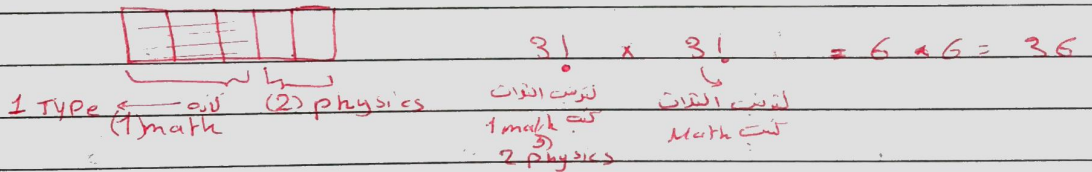 3! × 3! = 6 × 6 = 36
1 TYPE ← كانه (2) physics
(1) math
لترتيب الذوات
كتب 1 math
و
2 physics
لترتيب الذوات
كتب Math